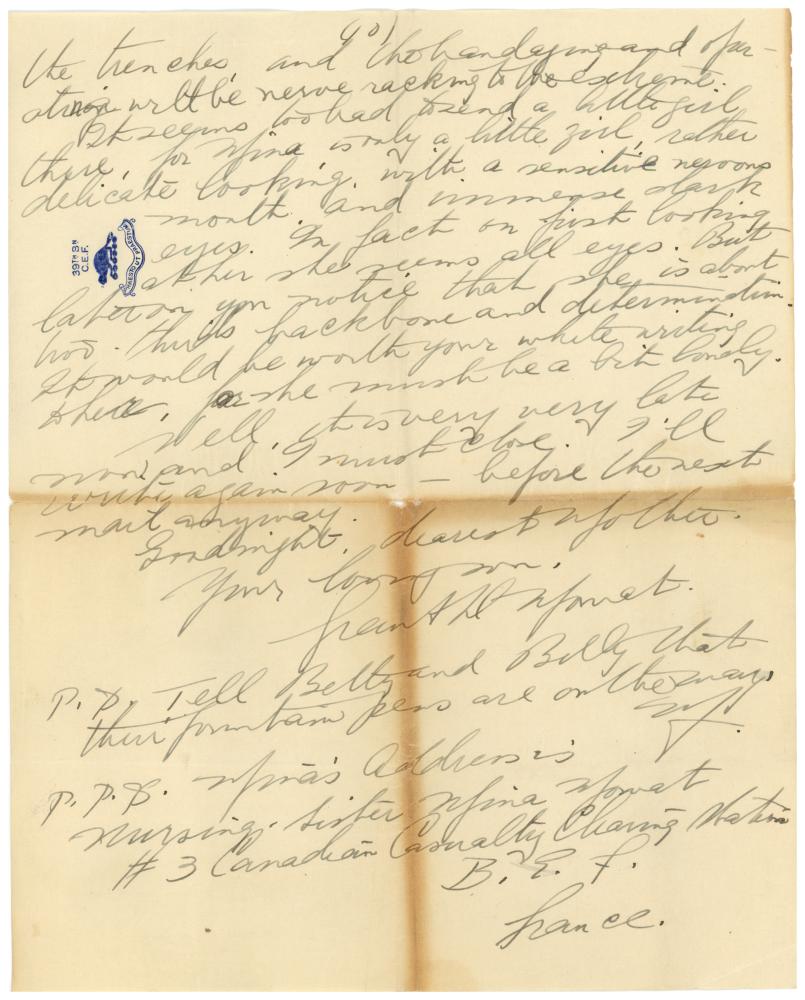 the trenches, and the bandaging and oper-
ating will be nerve racking to the extreme.
It seems too bad to send a little girl
there, for Nina is only a little girl, rather
delicate looking, with a sensitive nervous
mouth and immense dark
eyes. In fact on first looking
at her she seems all eyes. But
later on you notice that she is about
two-thirds backbone and determination.
It would be worth your while writing
to her, for she must be a bit lonely.
Well, it is very very late
now and I must close. I'll
write again soon — before the next
mail anyway.
Goodnight, dearest Mother.
Your loving son,
Mowat.
P.S. Tell Betty and Billy that
their fountain pens are on the way.
P.P.S. Nina's Address is
Nursing Sister Nina Mowat
# 3 Canadian Casualty Clearing Station
B. E. F.
France.
39TH BN
C.E.F.
PRAESTO UT PRAESTIM